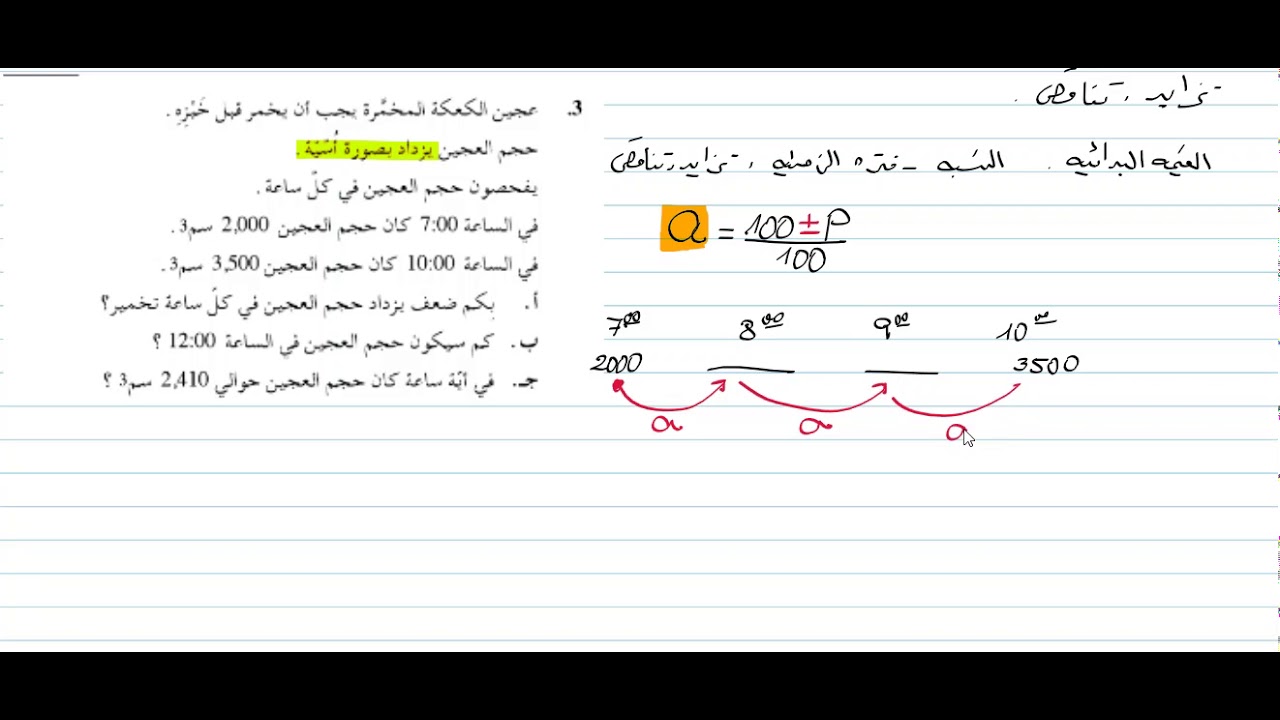 3. عجين الكعكة المخمَّرة يجب أن يخمر قبل خَبْزِهِ .
حجم العجين يزداد بصورة أُسّيّة .
يفحصون حجم العجين في كلّ ساعة .
في الساعة 7:00 كان حجم العجين 2,000 سم3 .
في الساعة 10:00 كان حجم العجين 3,500 سم3 .
أ. بكم ضعف يزداد حجم العجين في كلّ ساعة تخمير؟
ب. كم سيكون حجم العجين في الساعة 12:00 ؟
جـ. في أيّة ساعة كان حجم العجين حوالي 2,410 سم3 ؟
تزايد ، تناقص .
القيمة البدائية . النسبة - فترة الزمنية ، تزايد، تناقص
a = 100 ± P
100
7⁰⁰ 8⁰⁰ 9⁰⁰ 10⁰⁰
2000 ___ ___ 3500
a a a